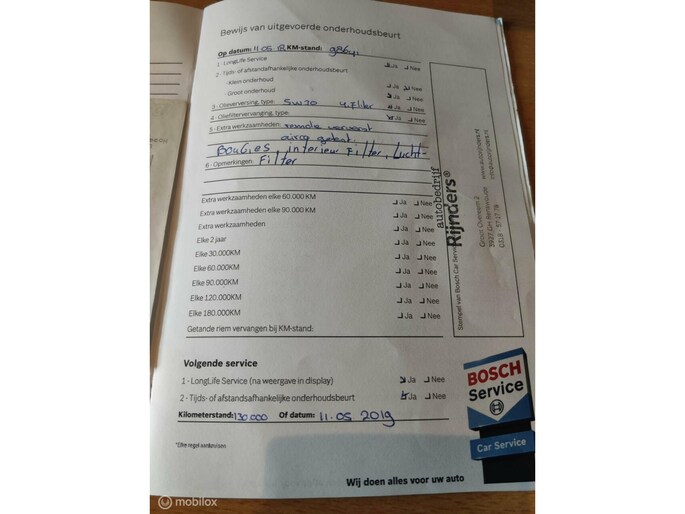 Bewijs van uitgevoerde onderhoudsbeurt
Op datum: 11 05 18 KM-stand: 98641
1 - LongLife Service Ja Nee
2 - Tijds- of afstandsafhankelijke onderhoudsbeurt
- Klein onderhoud Ja Nee
- Groot onderhoud Ja Nee
3 - Olieverversing, type: 5W30 4.7 liter Ja Nee
4 - Oliefiltervervanging, type: Ja Nee
5 - Extra werkzaamheden: remolie ververst
airco getest.
BouGies, interieur Filter, Lucht-
6 - Opmerkingen: Filter
Extra werkzaamheden elke 60.000 KM Ja Nee
Extra werkzaamheden elke 90.000 KM Ja Nee
Extra werkzaamheden Ja Nee
Elke 2 jaar Ja Nee
Elke 30.000KM Ja Nee
Elke 60.000KM Ja Nee
Elke 90.000KM Ja Nee
Elke 120.000KM Ja Nee
Elke 180.000KM Ja Nee
Getande riem vervangen bij KM-stand:
Stempel van Bosch Car Service
autobedrijf
Rijnders®
0318 - 57 17 78
www.autorijnders.nl
info@autorijnders.nl
Volgende service
1 - LongLife Service (na weergave in display) Ja Nee
2 - Tijds- of afstandsafhankelijke onderhoudsbeurt Ja Nee
Kilometerstand: 130.000 Of datum: 11-05 2019
BOSCH
Service
Car Service
Wij doen alles voor uw auto
mobilox